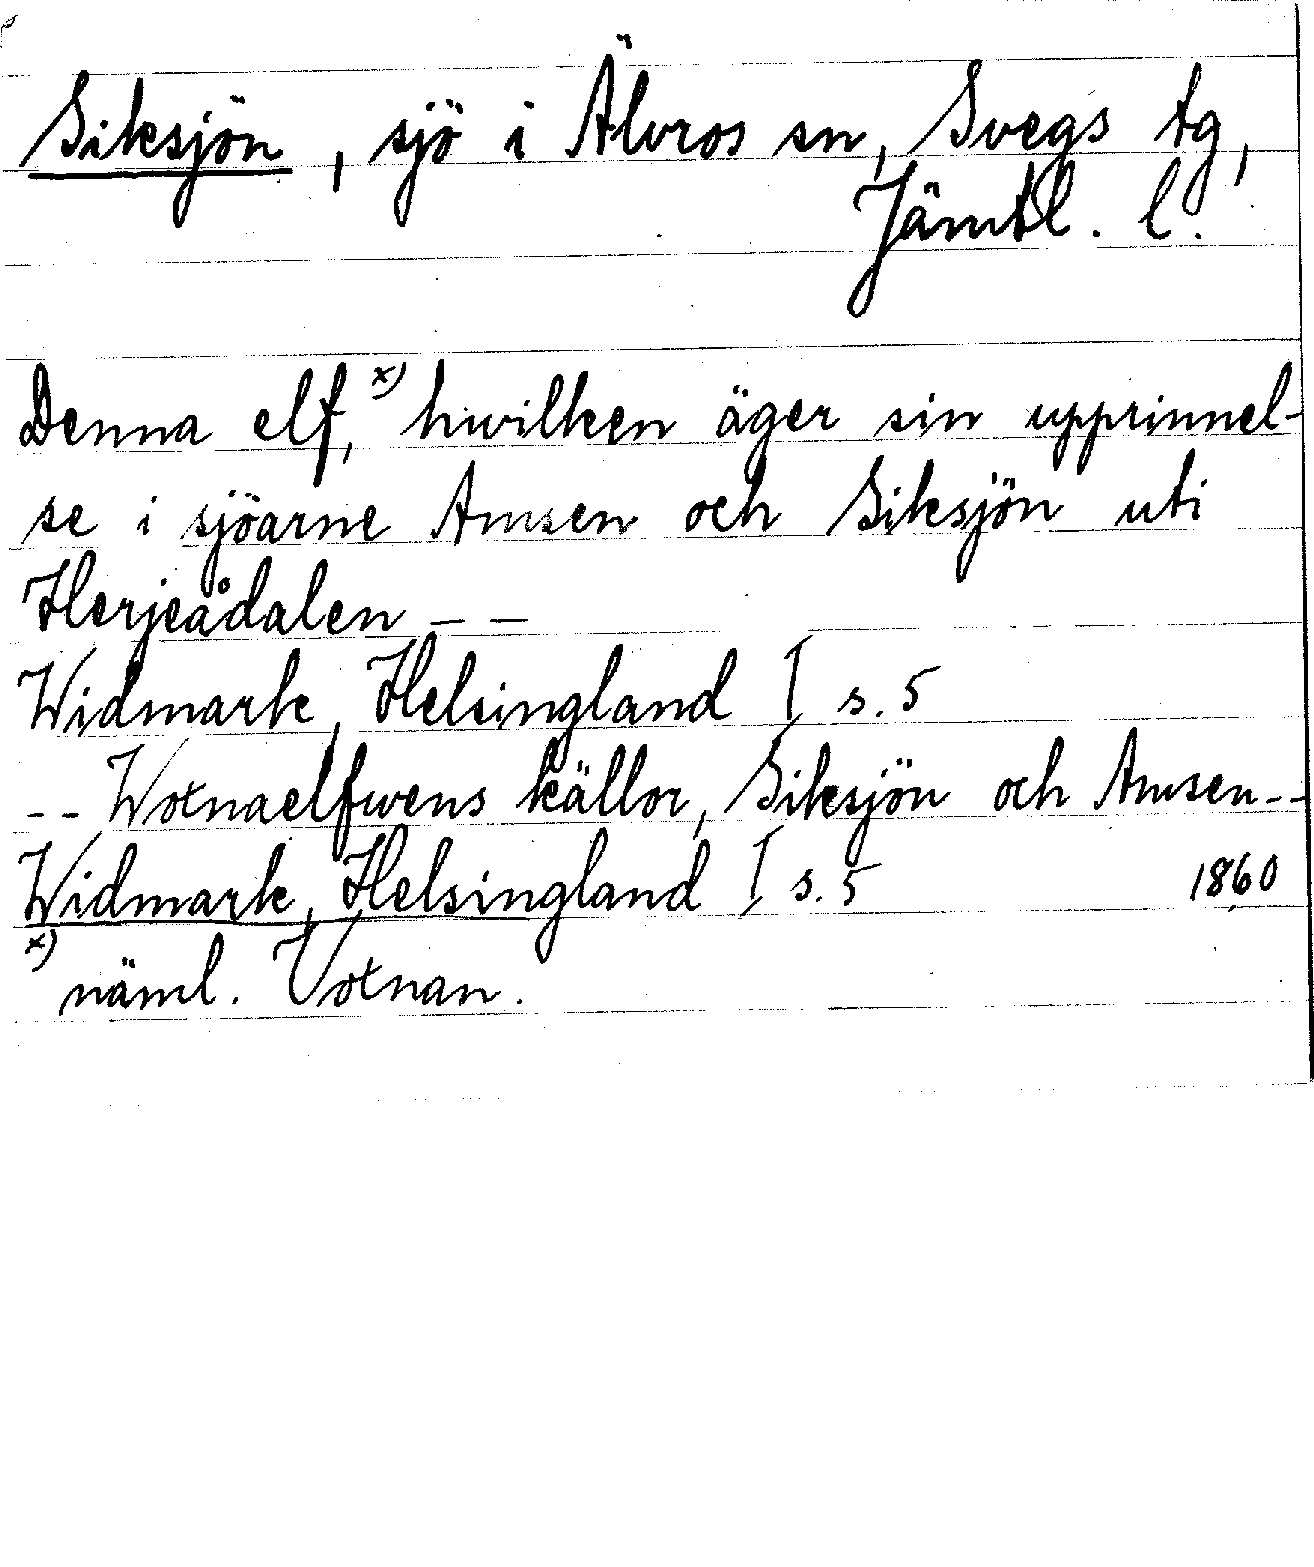 Siksjön, sjö i Älvros sn, Svegs tg,
Jämtl. l.
Denna elf,x) hwilken äger sin upprinnel-
se i sjöarne Amsen och Siksjön uti
Herjeådalen _ _
Widmark, Helsingland I s. 5
-- Woxnaelfwens källor, Siksjön och Amsen--
Widmark, Helsingland I s. 5 1860
x) näml. Voxnan.